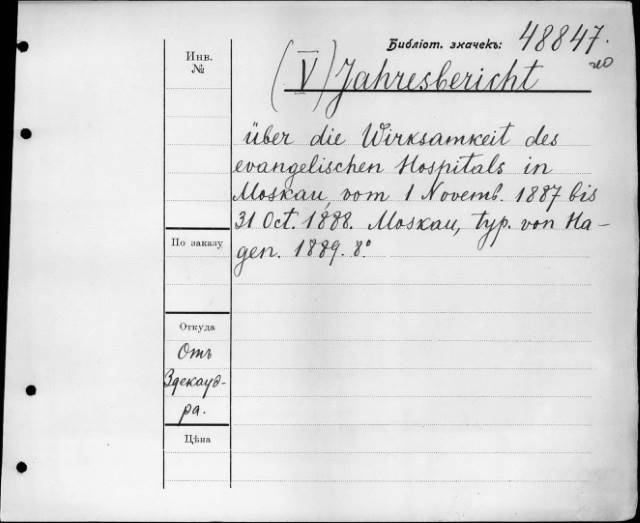 Библіот. значекъ: 48847.
Инв.
№
(V) Jahresbericht
über die Wirksamkeit des
evangelischen Hospitals in
Moskau, vom 1 Novemb. 1887 bis
31 Oct. 1888. Moskau, typ. von Ha-
gen. 1889. 8º
По заказу
Откуда
Отъ
Здекауэ-
ра.
Цѣна